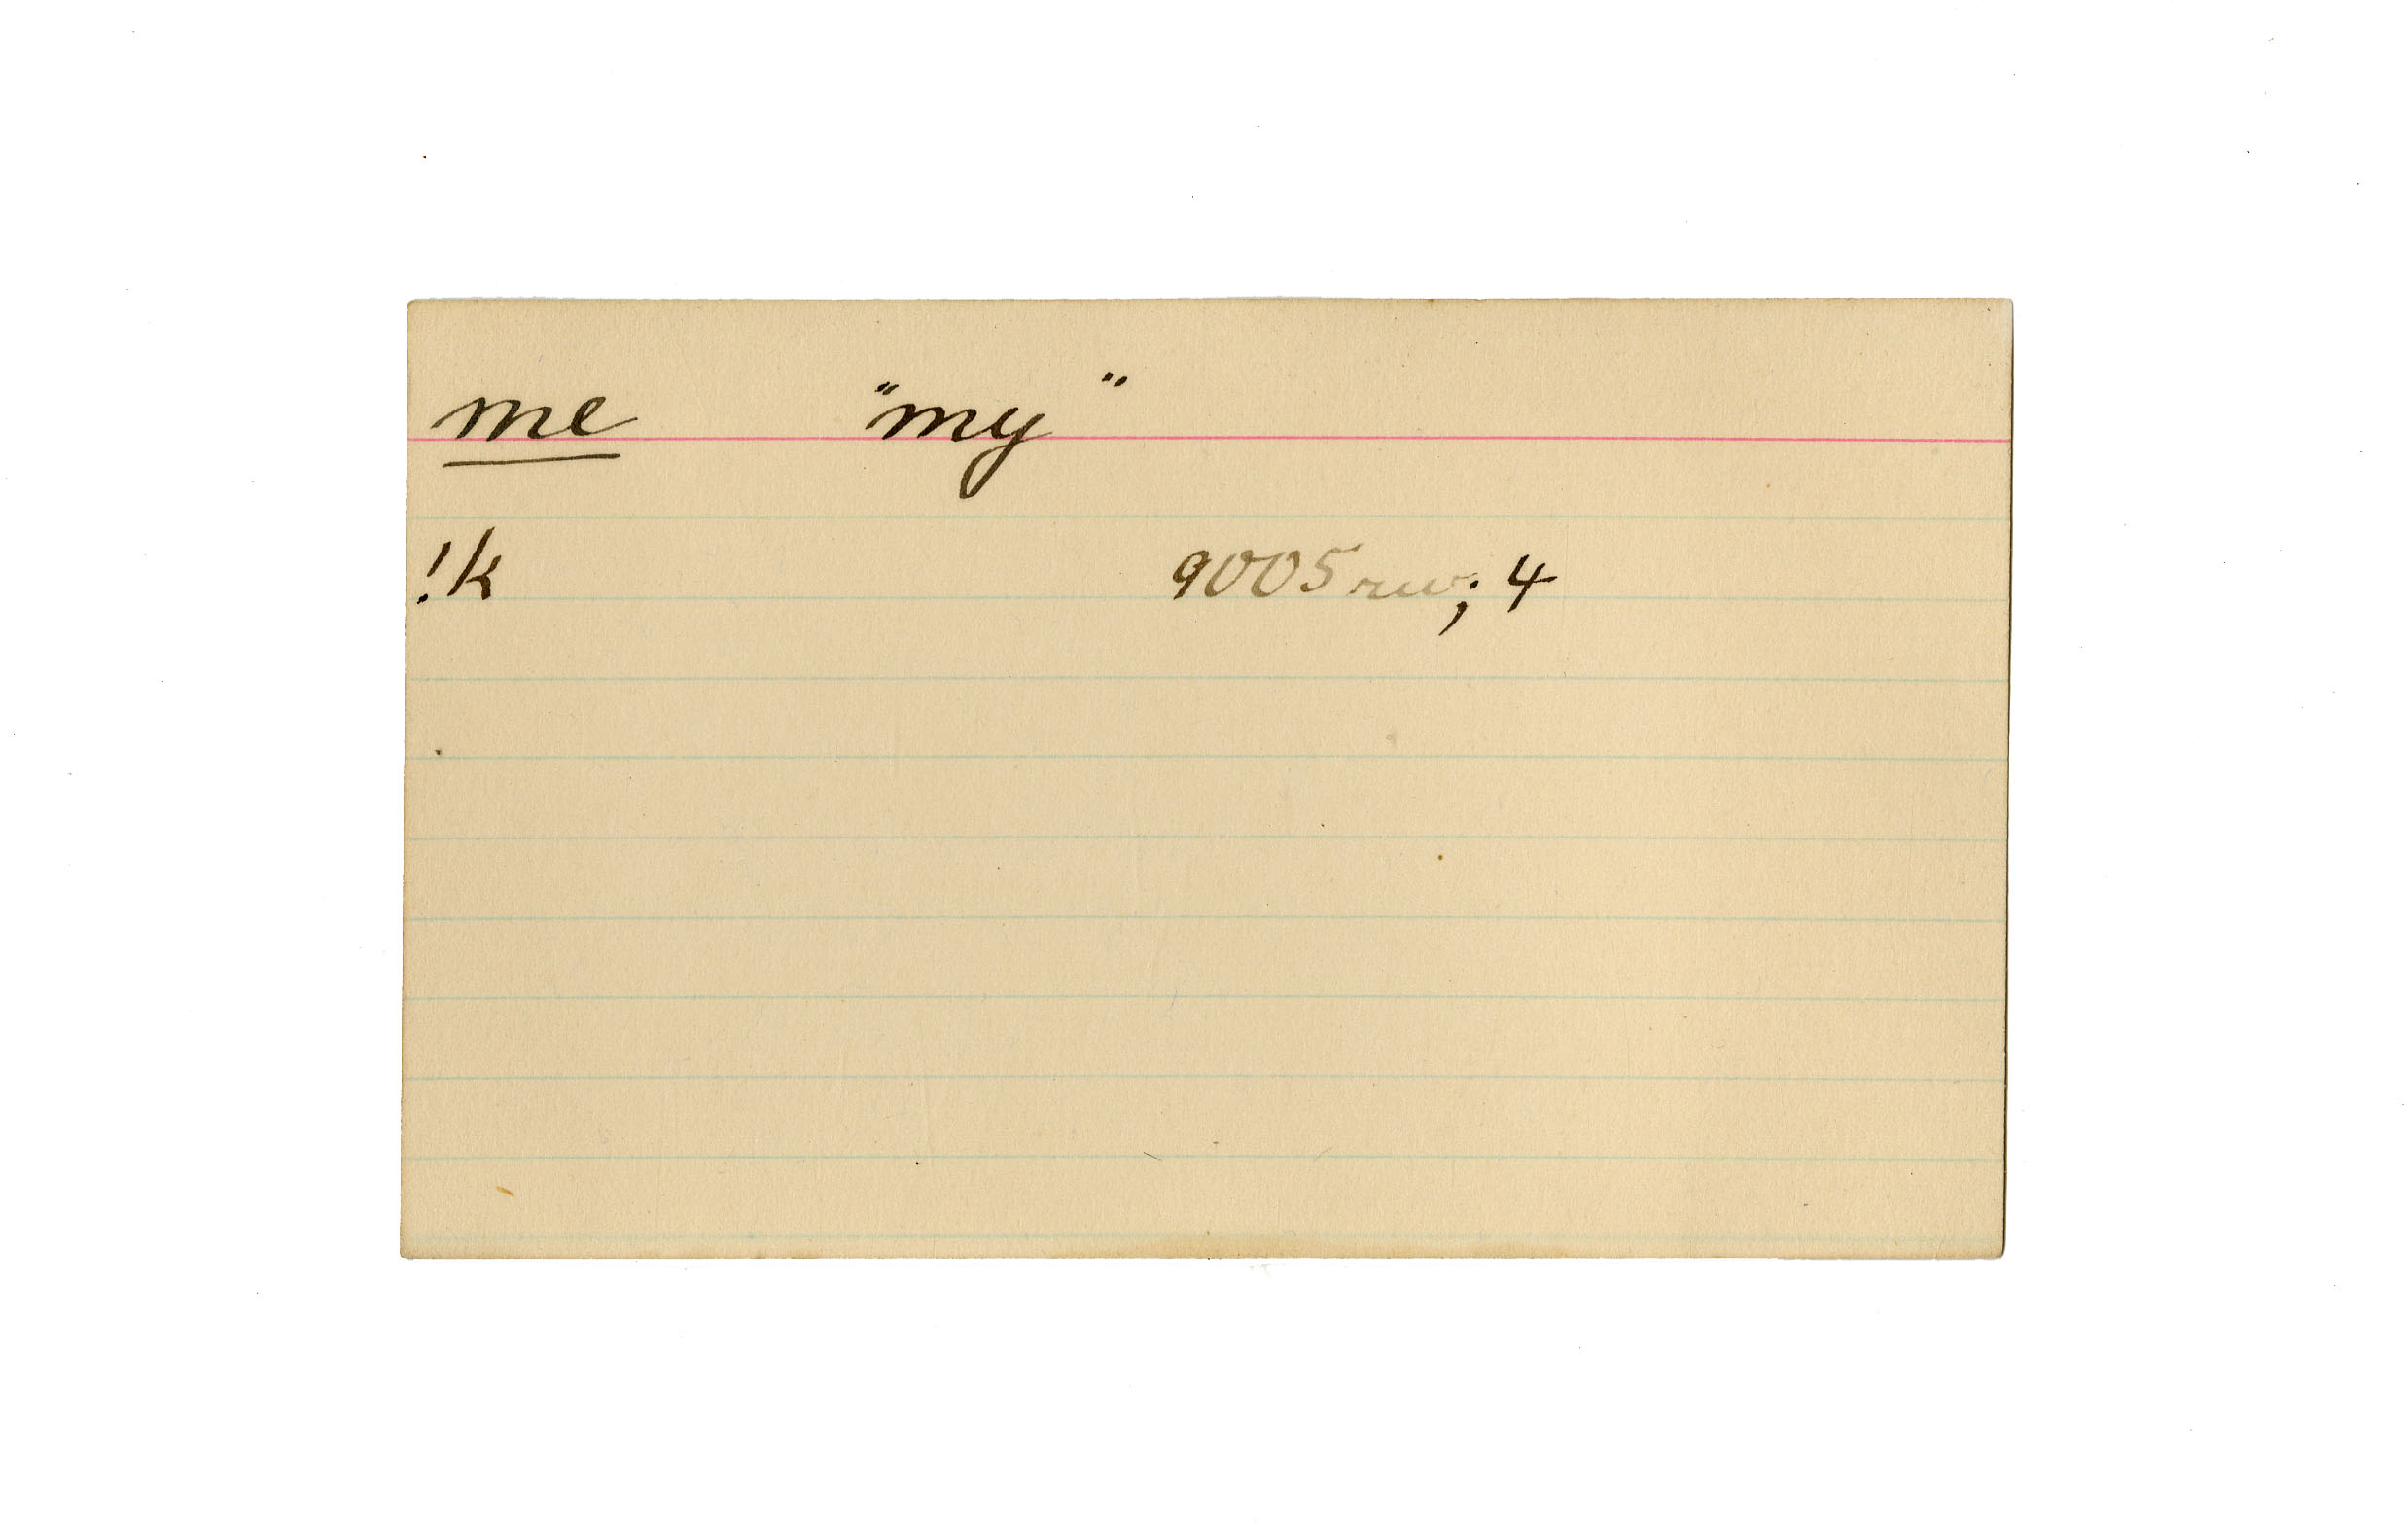 me "my"
!k 9005 rw; 4